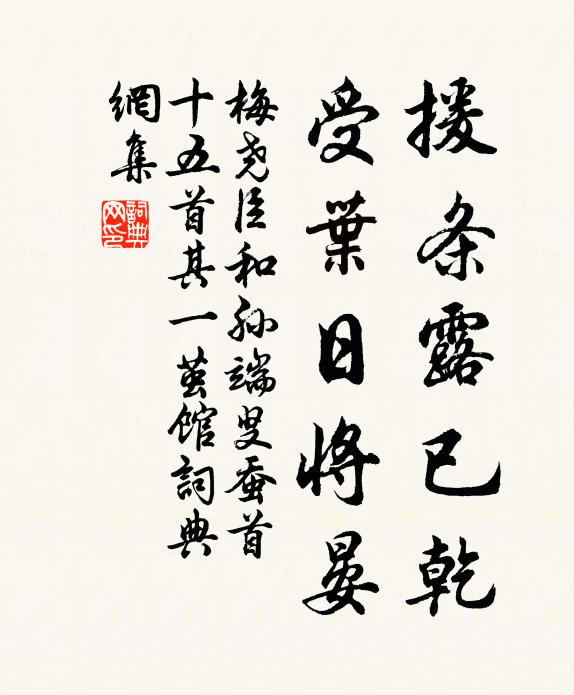 援条露已乾
受葉日将晏
梅尧臣和孙端叟蚕首
十五首其一茧馆詞典
網集
詞典网印